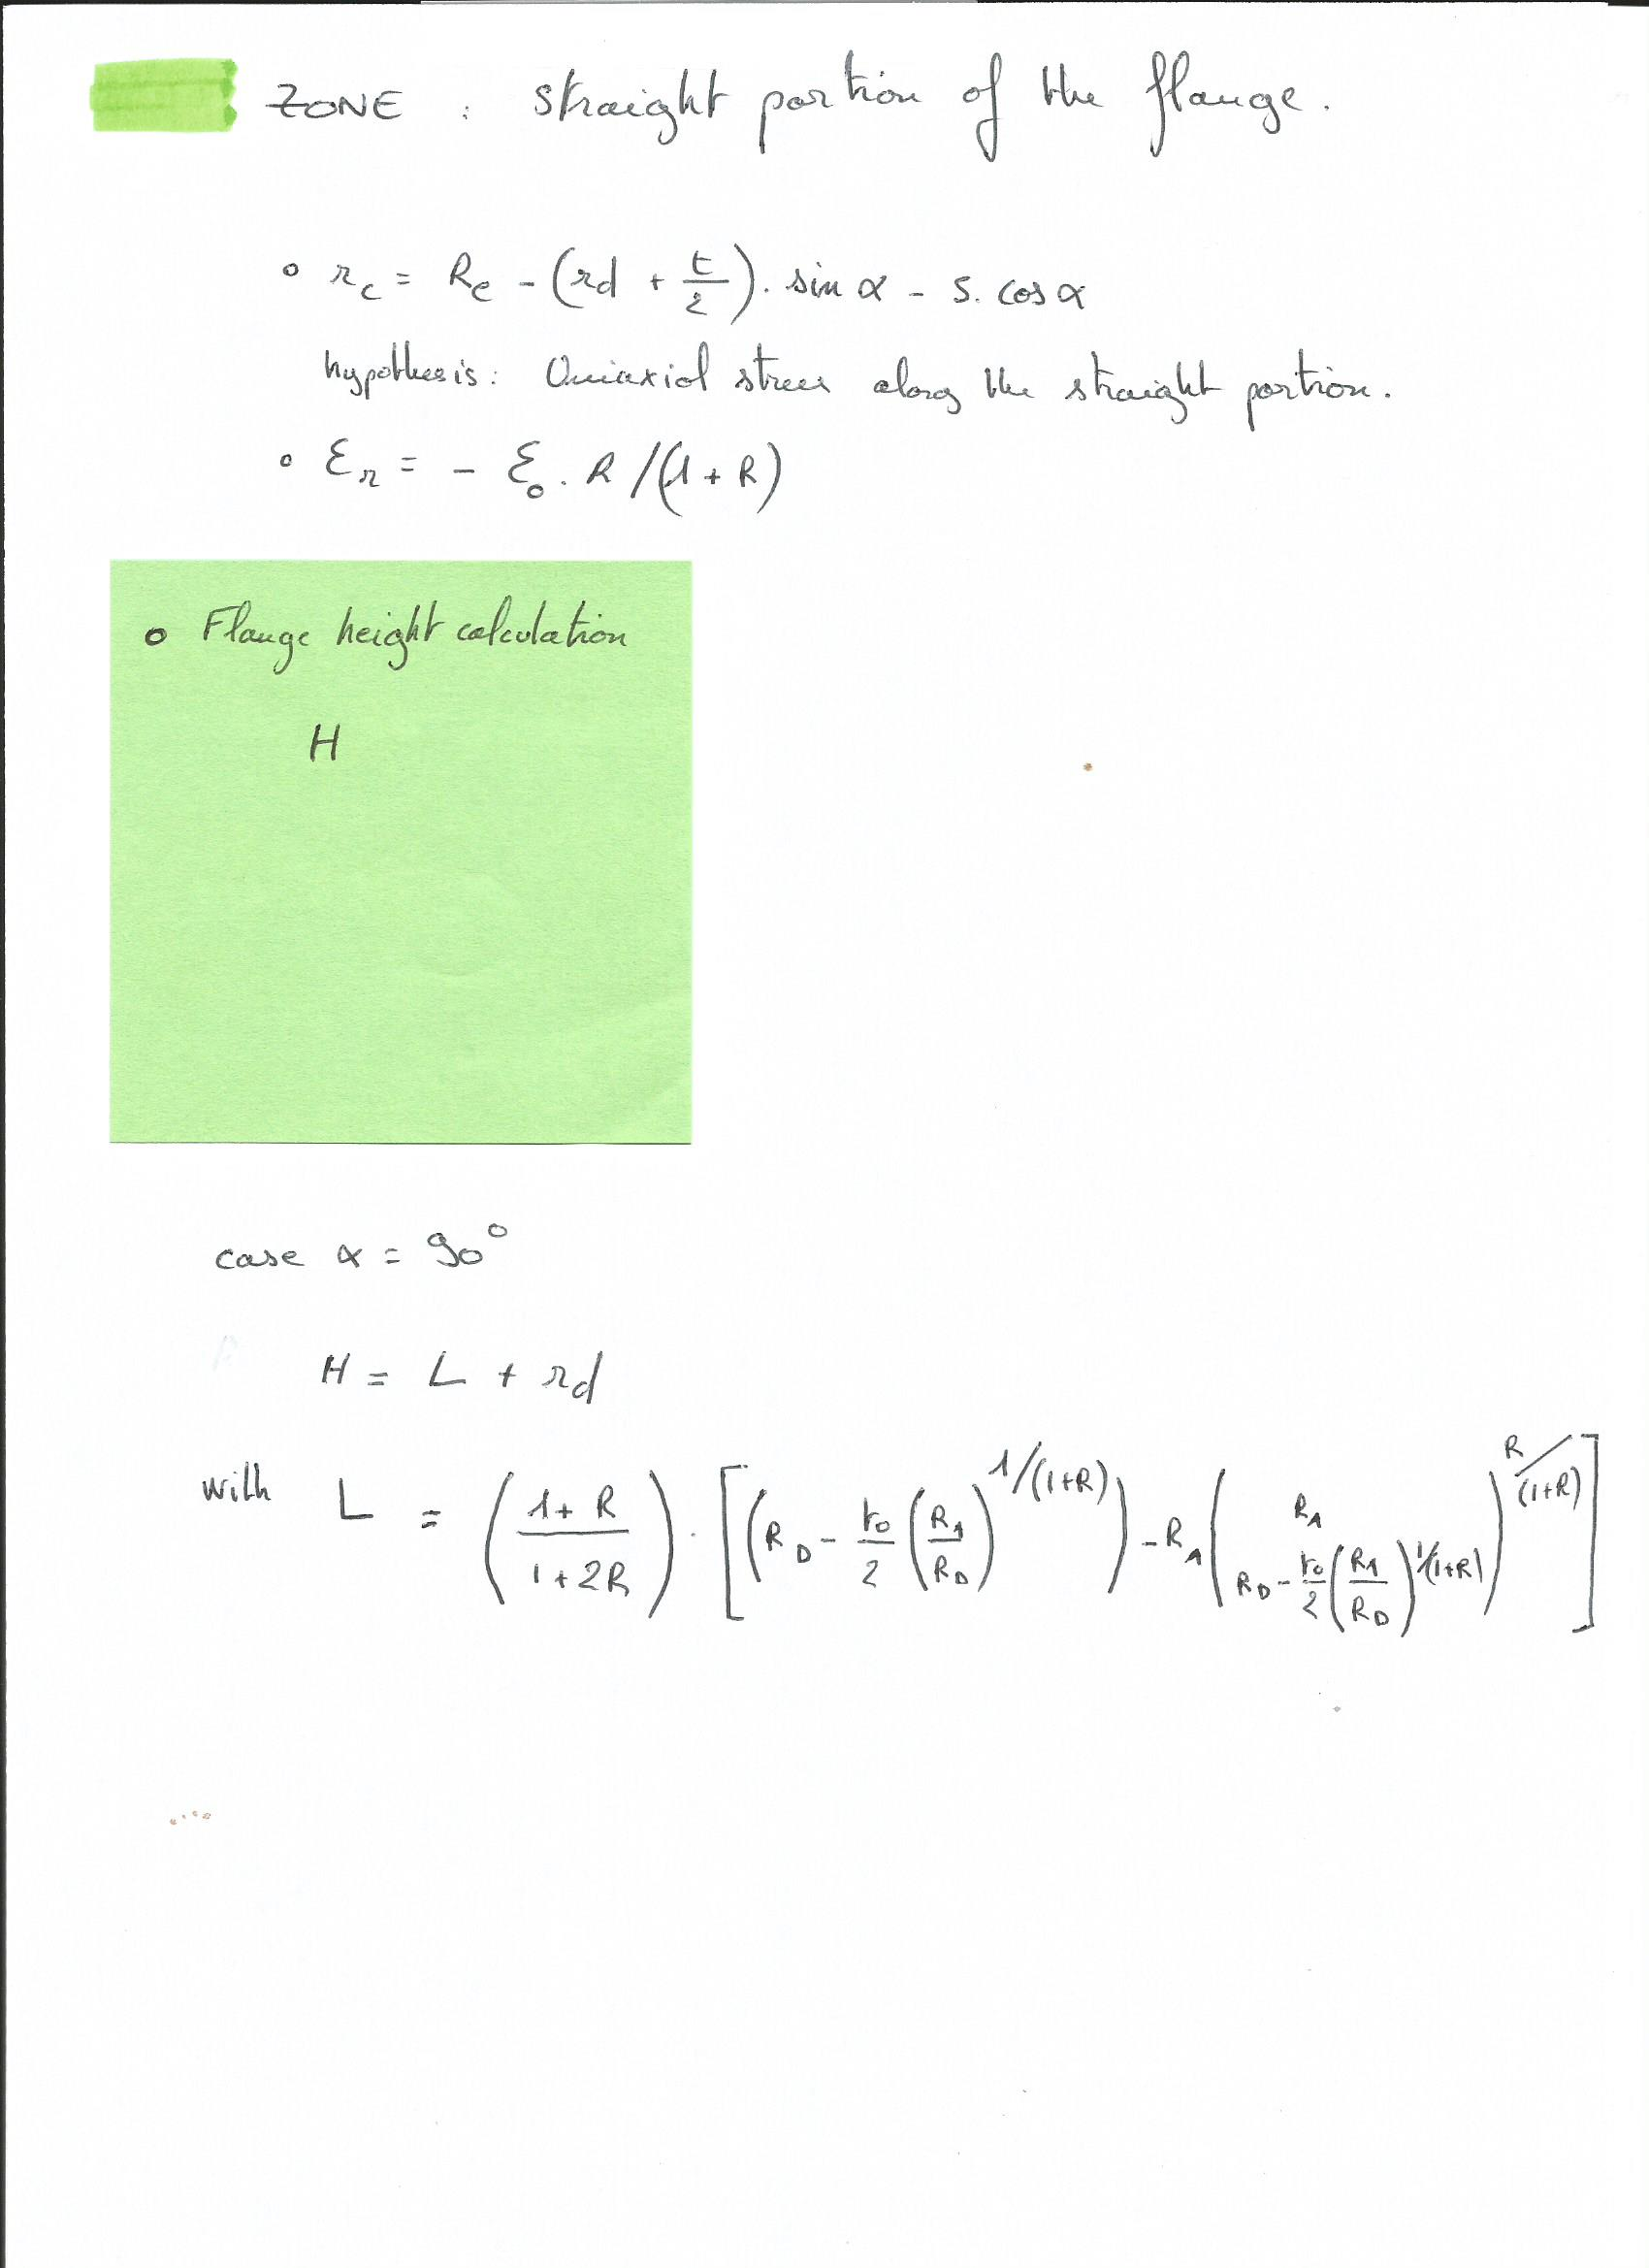 ZONE : straight portion of the flange.
o r_c = R_e - (rd + t/2) . sin α - s. cos α
hypothesis: Uniaxial stress along the straight portion.
o ε_r = - ε_o . R /(1 + R)
o Flange height calculation
H
case α = 90°
H = L + rd
with L = ((1 + R)/(1 + 2R)) . [(R_D - t_0/2 (R_1/R_D)^1/(1+R)) - R_1 (R_1 / R_D - t_0/2 (R_1/R_D)^1/(1+R))^R/(1+R)]